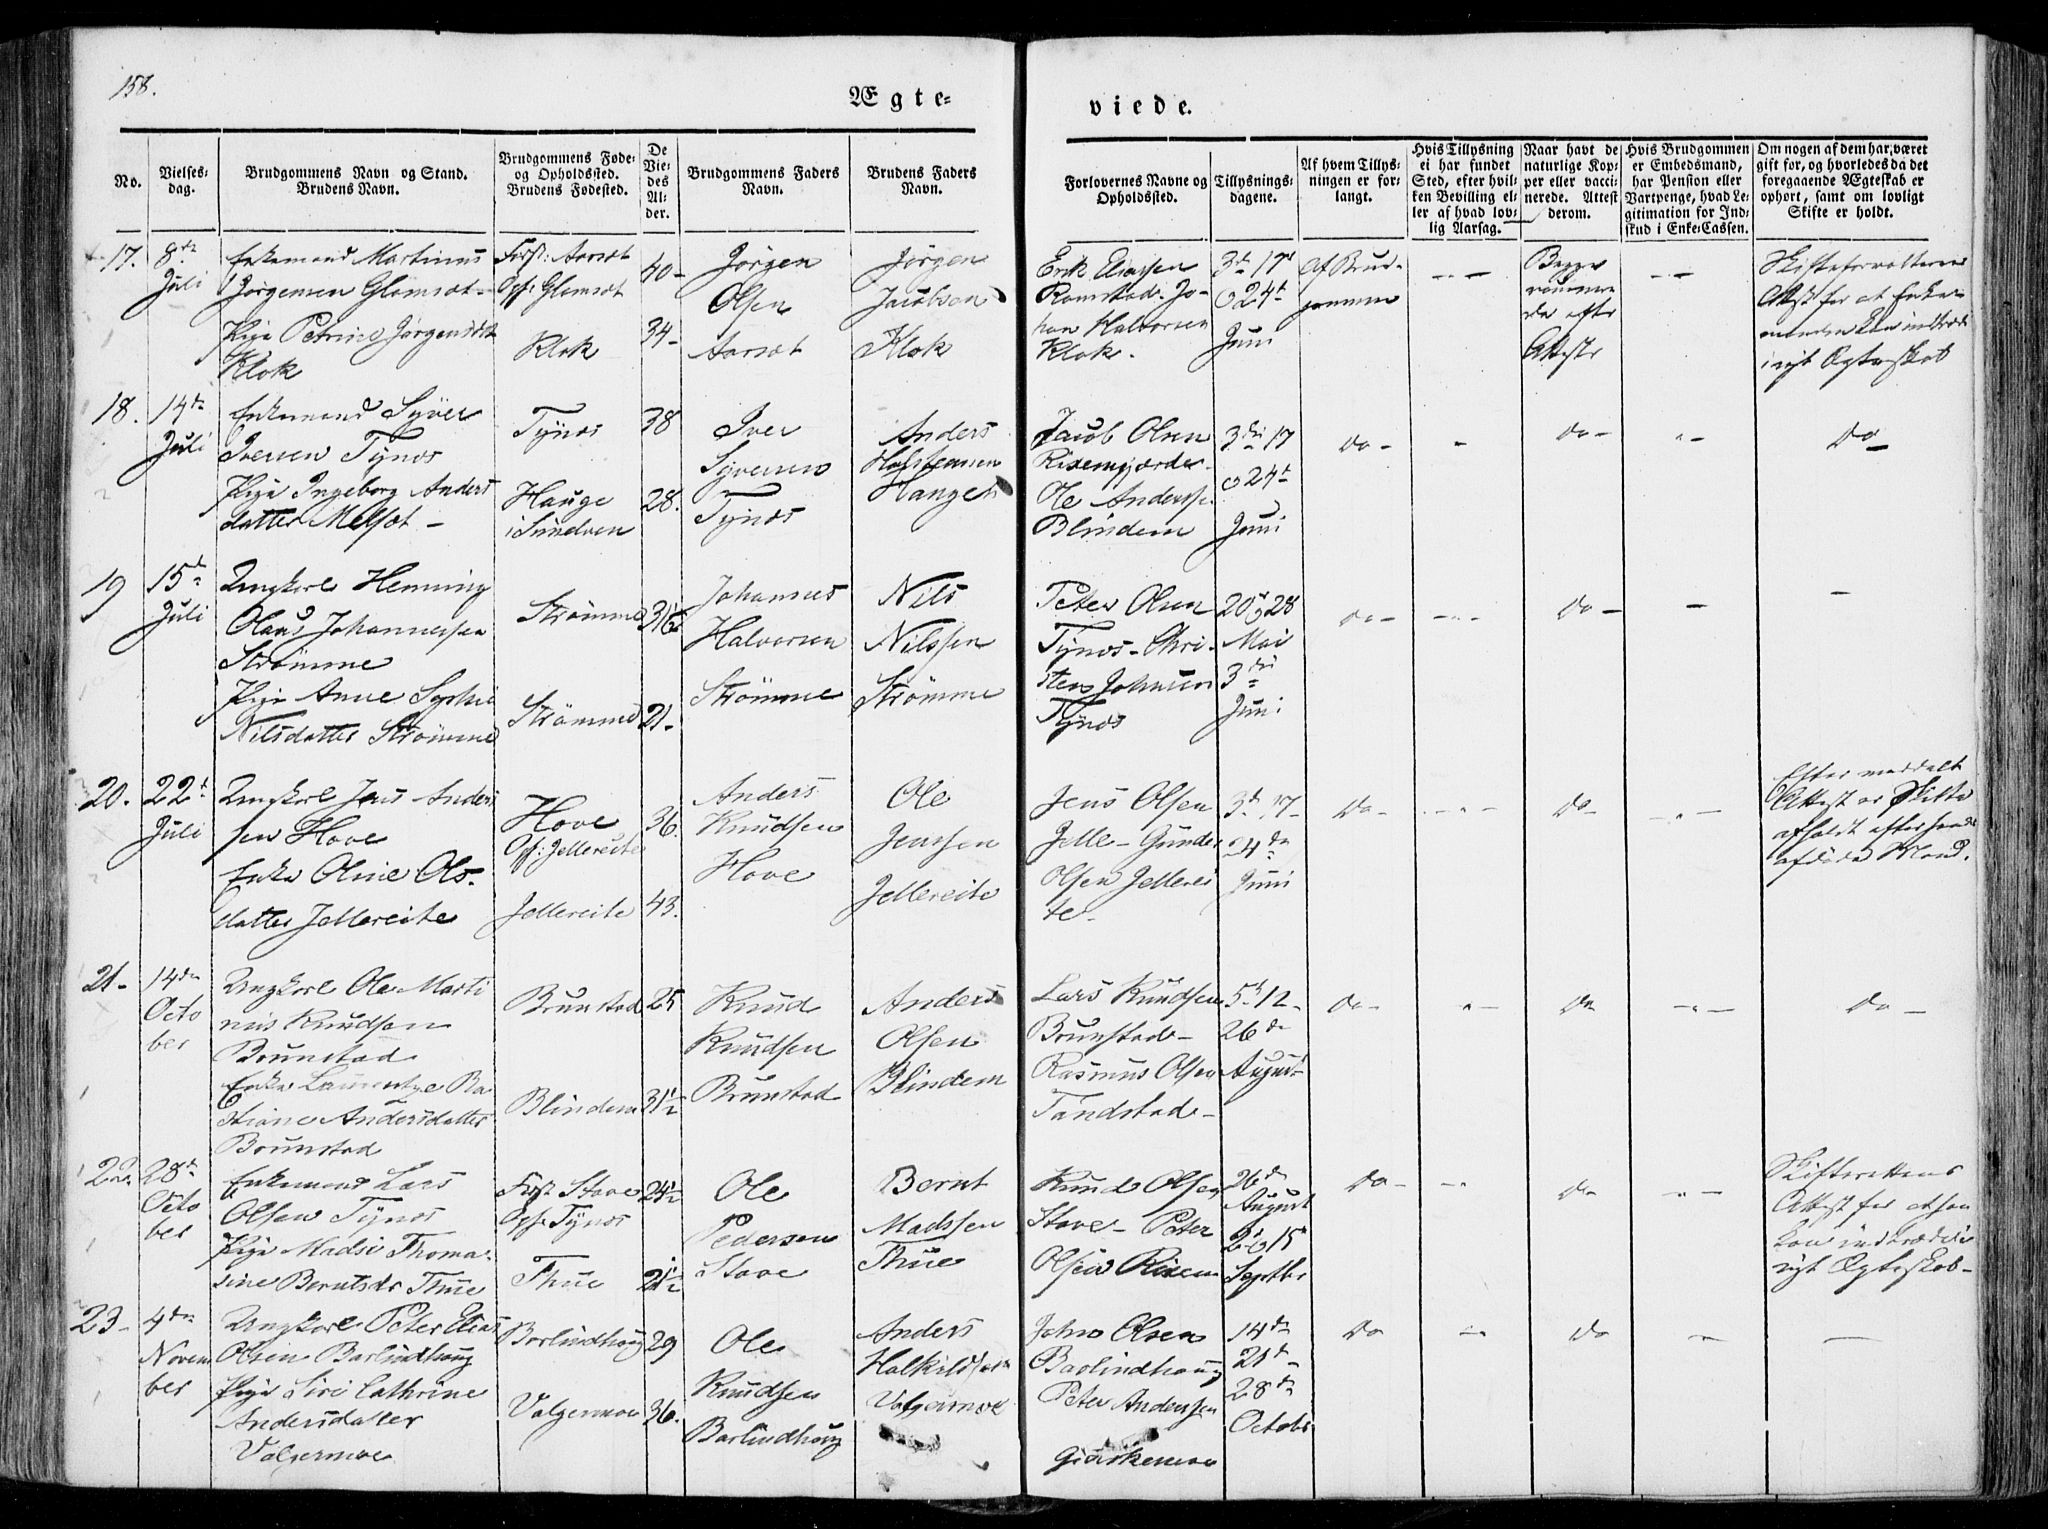 158.
Ægte-
viede.
No.
Vielses-
dag.
Brudgommens Navn og Stand.
Brudens Navn.
Brudgommens Føde-
og Opholdssted.
Brudens Fødested.
De
Vie-
des
Al-
der.
Brudgommens Faders
Navn.
Brudens Faders
Navn.
Forlovernes Navne og
Opholdssted.
Tillysnings-
dagene.
Af hvem Tillys-
ningen er for-
langt.
Hvis Tillysning
ei har fundet
Sted, efter hvil-
ken Bevilling el-
ler af hvad lov-
lig Aarsag.
Naar havt de
naturlige Kop-
per eller vacci-
nerede. Attest
derom.
Hvis Brudgommen
er Embedsmand,
har Pension eller
Vartpenge, hvad Le-
gitimation for Ind-
skud i Enke-Cassen.
Om nogen af dem har været
gift før, og hvorledes da det
foregaaende Ægteskab er
ophørt, samt om lovligt
Skifte er holdt.
17.
8de
Juli
Enkemand Martinus
Jørgensen Glomsæt-
Pige Petrine Jørgensdtr
Klok
Først: Aarsæt
Opf: Glomsæt
Klok
40-
34-
Jørgen
Olsen
Aarsæt
Jørgen
Jacobsen
Klok
Erik Eliassen
Ramstad. Jo-
han Halvorsen
Klok.
3de 17de
o 24de
Juni
Af Brud-
gommen
Begge
vaccinere-
de efter
Attester
Skifteforvalterens
Attest for at Enke-
manden kan indtræde
i nyt Ægteskab
18.
14de
Juli
Enkemand Syver
Iversen Tynes
Pige Ingeborg Anders
datter Melsæt -
Tynes
Hauge
i Sundven
38
28.
Iver
Syversen
Tynes
Anders
Halstensen
Hauge
Jacob Olsen
Ole Anderss.
Blindem
3die 17
o 24de
Juni
do-
do-
do-
19
15de
Juli
Ungkarl Henning
Olaus Johannessen
Strømme
Pige Anne Sophie
Nilsdatter Strømme
Strømme
Strømme
31½
21-
Johannes
Halvorsen
Strømme
Nils
Nilssen
Strømme
Peter Olsen
Tynes - Chri-
sten Johnsen
Tynes
20de o 28
Mai
3die
Juni
do-
do-
20.
22de
Juli
Ungkarl Jens Anders
sen Hove
Enke Oline Ols-
datter Jellereite
Hove
Opf: Jellereite
Jellereite
36.
43.
Anders
Knudsen
Hove
Ole
Jenssen
Jellereite
Jens Olsen
Jelle - Gunder
Olsen Jellerei
te-
3de 17-
24de
Juni
do-
do-
Efter meddelt
Attest er Skifte
afholdt efter hendes
afdøde Mand.
21-
14de
Octo
ber
Ungkarl Ole Marti
nus Knudsen
Brunstad
Enke Laurentze Ba
stiane Andersdatter
Brunstad
Brunstad
Blindem
25
31½
Knud
Knudsen
Brunstad
Anders
Olsen
Blindem
Lars Knudsen
Brunstad-
Rasmus Olsen
Tandstad-
5te 12-
26de
August
do-
do
do-
22.
28de
Octo
ber
Enkemand Lars
Olsen Tynes
Pige Madsi Thoma-
sine Berntsdr Thue
Først Stave
Opf: Tynes
Thue
24½
21½
Ole
Pedersen
Stave
Bernt
Madssen
Thue
Knud Olsen
Stave - Peter
Olsen Risem
26de
August
2 o 15
Septbr
do-
do-
Skifterettens
Attest for at han
kan indtræde i
nyt Ægteskab-
23-
4de
Novem
ber
Ungkarl Peter Elias
Olsen Barlindhoug
Pige Siri Cathrine
Andersdatter
Valgermoe
Barlindhoug
Valgermoe
29
36.
Ole
Knudsen
Barlindhoug
Anders
Halkildsen
Valgermoe
John Olsen
Barlindhoug
Peter Anderssen
Giærkemoe
14de
21de
28de
October
do
do